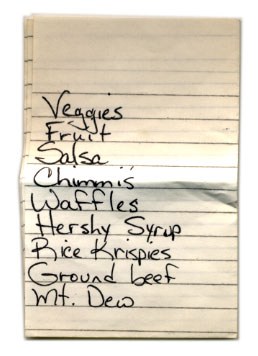 Veggies
Fruit
Salsa
Chimmis
Waffles
Hershy Syrup
Rice Krispies
Ground beef
Mt. Dew